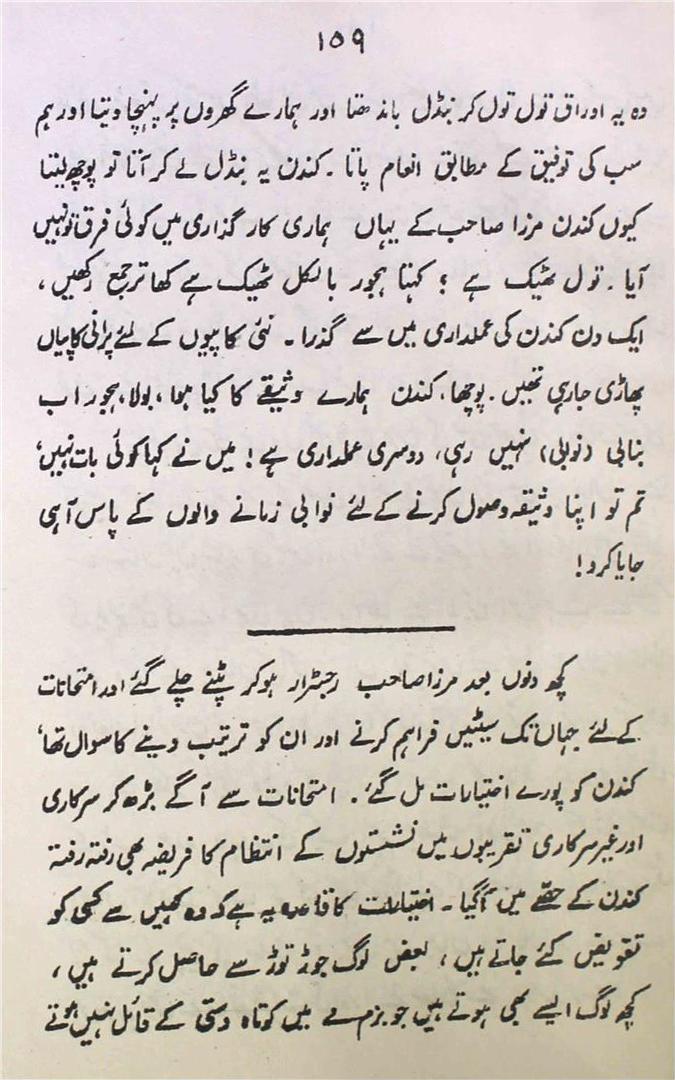 ۱۵۹
وہ یہ اوراق تول تول کر بنڈل باندھتا اور ہمارے گھروں پر پہنچا دیتا اور ہم
سب کی توفیق کے مطابق انعام پاتا۔ کندن یہ بنڈل لے کر آتا تو پوچھ لیتا
کیوں کندن مرزا صاحب کے یہاں ہماری کار گذاری میں کوئی فرق تو نہیں
آیا۔ تول ٹھیک ہے ؟ کہتا ہجور بالکل ٹھیک ہے کھاترجمع رکھیں،
ایک دن کندن کی عملداری میں سے گذرا۔ نئی کاپیوں کے لئے پرانی کاپیاں
پھاڑی جارہی تھیں۔ پوچھا، کندن ہمارے وثیقے کا کیا ہوا، بولا، ہجور اب
بنابی (نوابی) نہیں رہی، دوسری عملداری ہے! میں نے کہا کوئی بات نہیں،
تم تو اپنا وثیقہ وصول کرنے کے لئے نوابی زمانے والوں کے پاس آہی
جایا کرو!
کچھ دنوں بعد مرزا صاحب رجسٹرار ہوکر پٹنے چلے گئے اور امتحانات
کے لئے جہاں تک سیٹیں فراہم کرنے اور ان کو ترتیب دینے کا سوال تھا،
کندن کو پورے اختیارات مل گئے۔ امتحانات سے آگے بڑھ کر سرکاری
اور غیر سرکاری تقریبوں میں نشستوں کے انتظام کا فریضہ بھی رفتہ رفتہ
کندن کے حصّے میں آگیا۔ اختیارات کا قاعدہ یہ ہے کہ وہ کہیں سے کسی کو
تفویض کئے جاتے ہیں، بعض لوگ جوڑ توڑ سے حاصل کرتے ہیں،
کچھ لوگ ایسے بھی ہوتے ہیں جو بزم مے میں کوتاہ دستی کے قائل نہیں ہوتے